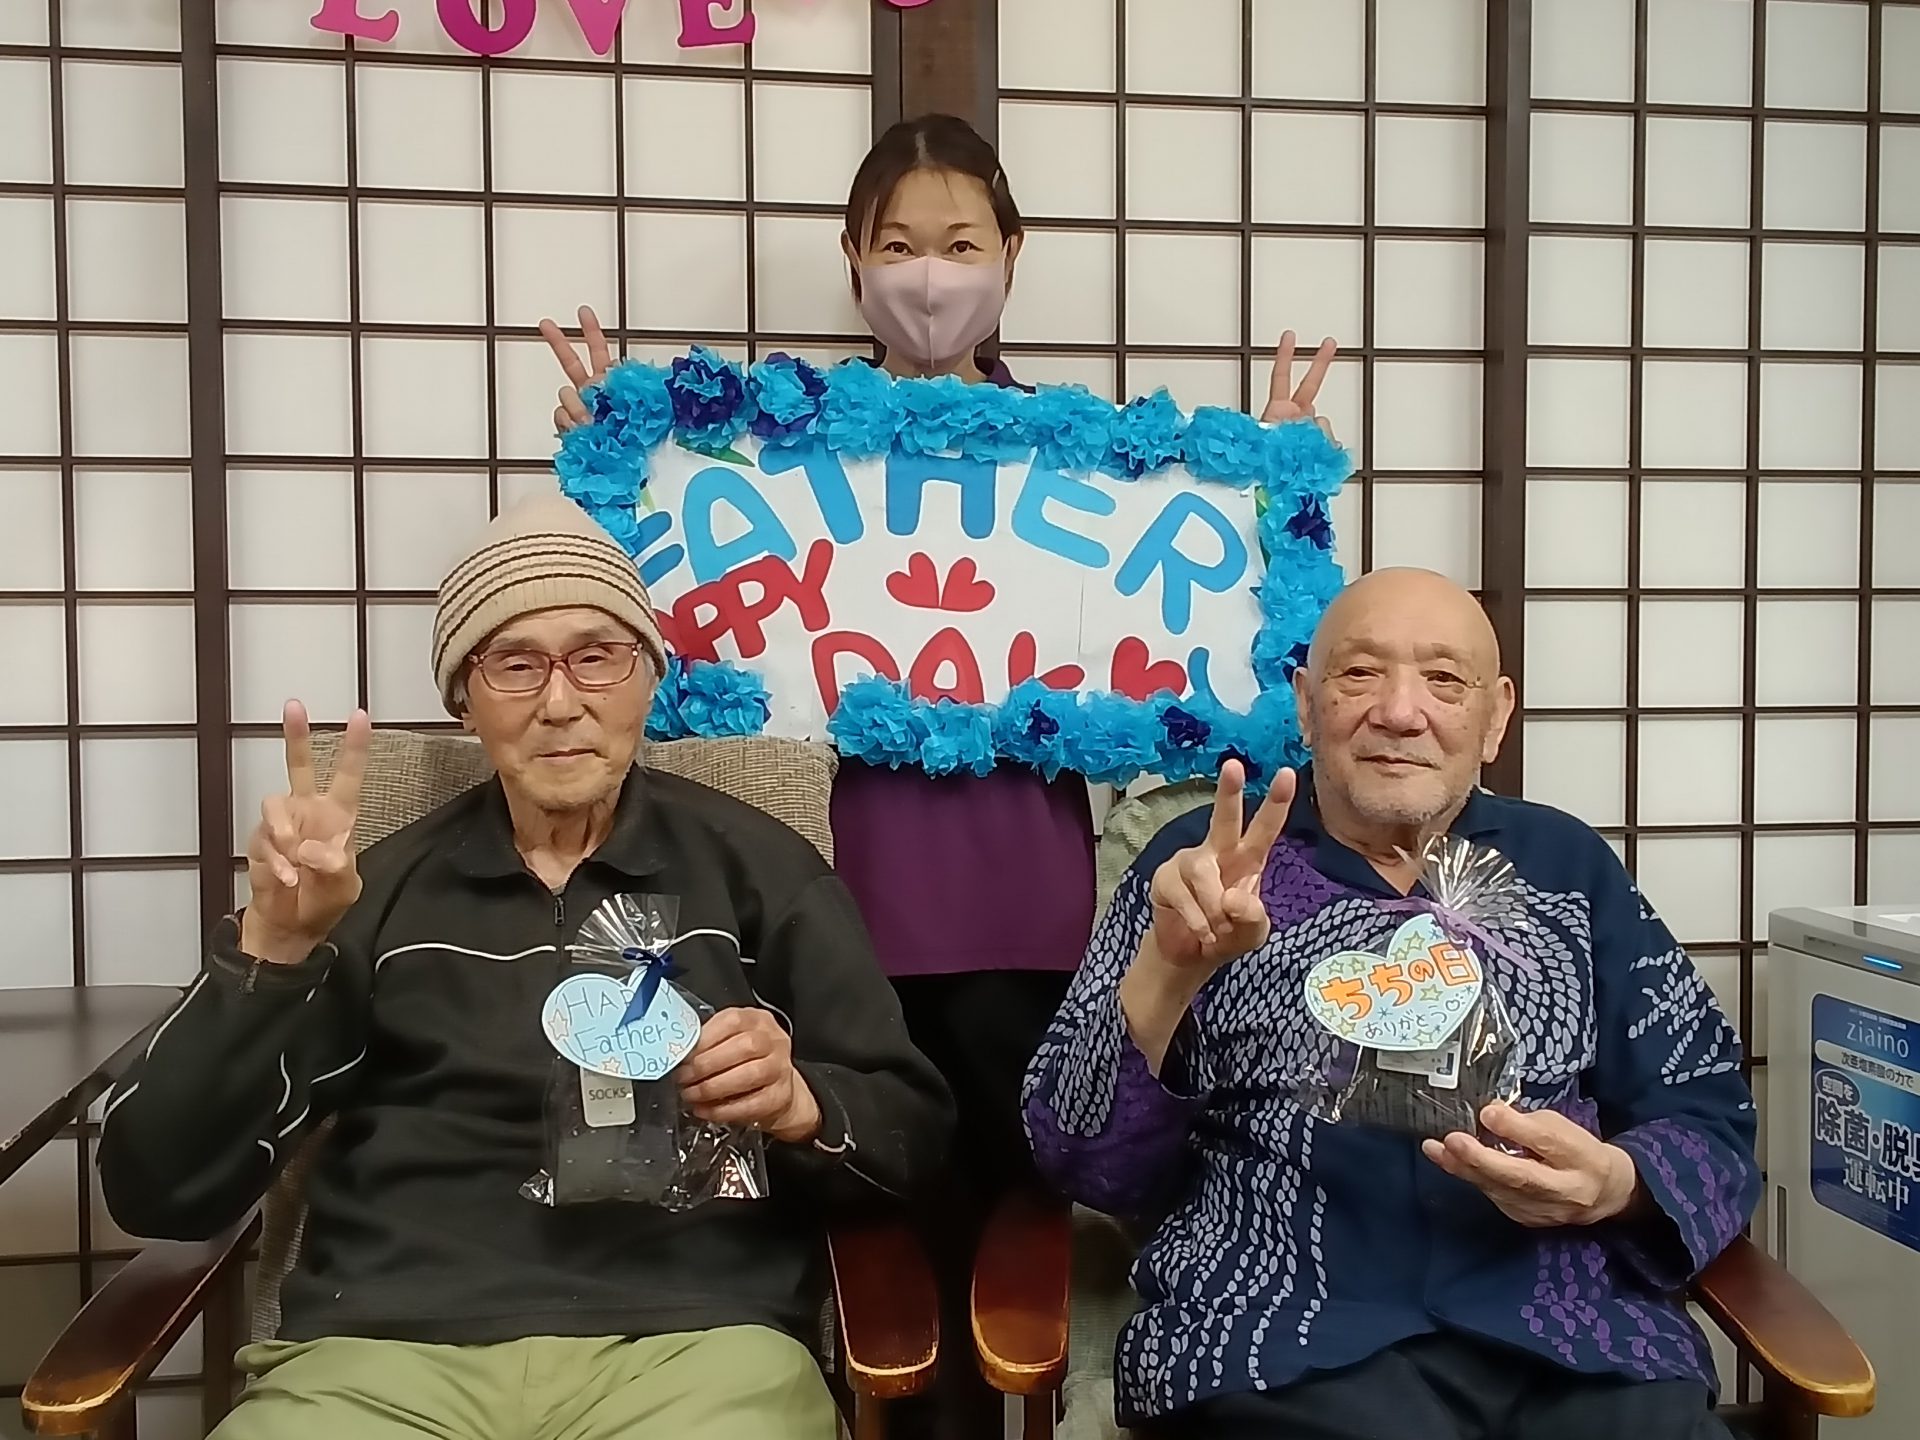 LOVE
FATHER
HAPPY
DAY
HAPPY
Father's
Day
SOCKS
ちちの日
ありがとう
ziaino
次亜塩素酸の力で
空間を
除菌・脱臭
運転中